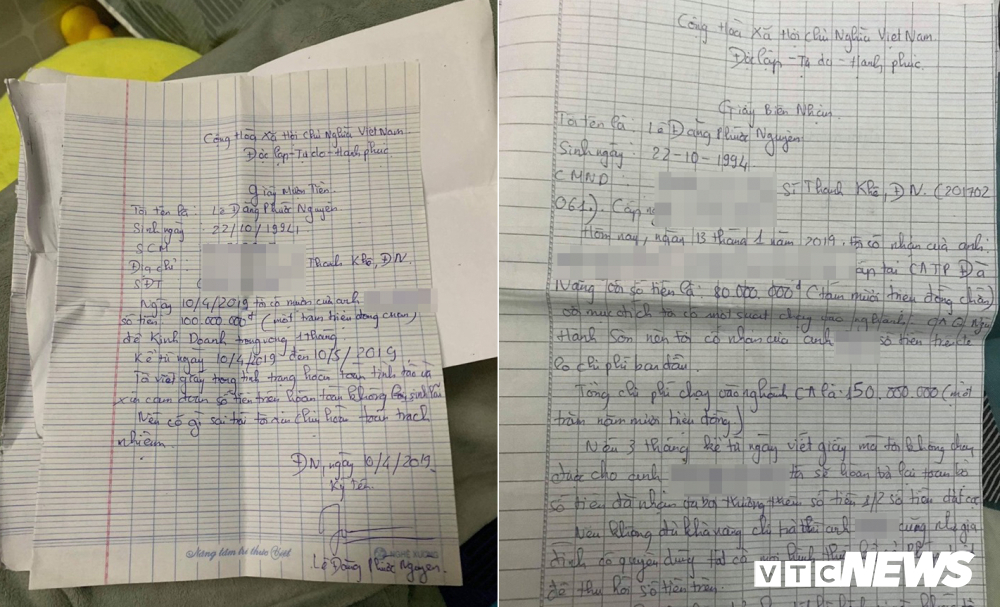 Cộng Hoà Xã Hội Chủ Nghĩa Việt Nam
Độc lập - Tự do - Hạnh phúc
Giấy Mượn Tiền
Tôi tên là : Lê Đặng Phước Nguyên
Sinh ngày : 22/10/1994
SCM
Địa chỉ : Thanh Khê, ĐN.
SĐT
Ngày 10/4/2019 tôi có mượn của anh
số tiền 100.000.000đ (một trăm triệu đồng chẵn)
để Kinh Doanh trong vòng 1 tháng
Kể từ ngày 10/4/2019 đến 10/5/2019
Tôi viết giấy trong tình trạng hoàn toàn tỉnh táo và
xin cam đoan số tiền trên hoàn toàn không lấy sinh lãi
Nếu có gì sai trái tôi xin chịu hoàn toàn trách
nhiệm.
ĐN, ngày 10/4/2019
Ký tên
Lê Đặng Phước Nguyên
Nâng tầm tri thức Việt
Cộng Hoà Xã Hội Chủ Nghĩa Việt Nam
Độc lập - Tự do - Hạnh phúc
Giấy Biên Nhận
Tôi tên là : Lê Đặng Phước Nguyên
Sinh ngày : 22-10-1994
CMND : Thanh Khê, ĐN. (201702
061). Cấp
Hôm nay, ngày 13 tháng 1 năm 2019, tôi có nhận của anh
cấp tại CATP Đà
Nẵng với số tiền là: 80.000.000đ (tám mươi triệu đồng chẵn)
với mục đích tôi có một suất chạy vào nghành CA Q Ngũ
Hành Sơn nên tôi có nhận của anh số tiền trên để
lo chi phí ban đầu.
Tổng chi phí chạy vào nghành CA là: 150.000.000 (một
trăm năm mươi triệu đồng)
Nếu 3 tháng kể từ ngày viết giấy mà tôi không chạy
được cho anh tôi sẽ hoàn trả lại toàn bộ
số tiền đã nhận và bồi thường thêm số tiền 1/2 số tiền đặt cọc
Nếu không đủ khả năng chi trả thì anh cũng như gia
đình có quyền dùng tất cả mọi hình thức
để thu hồi số tiền trên.
VTC NEWS